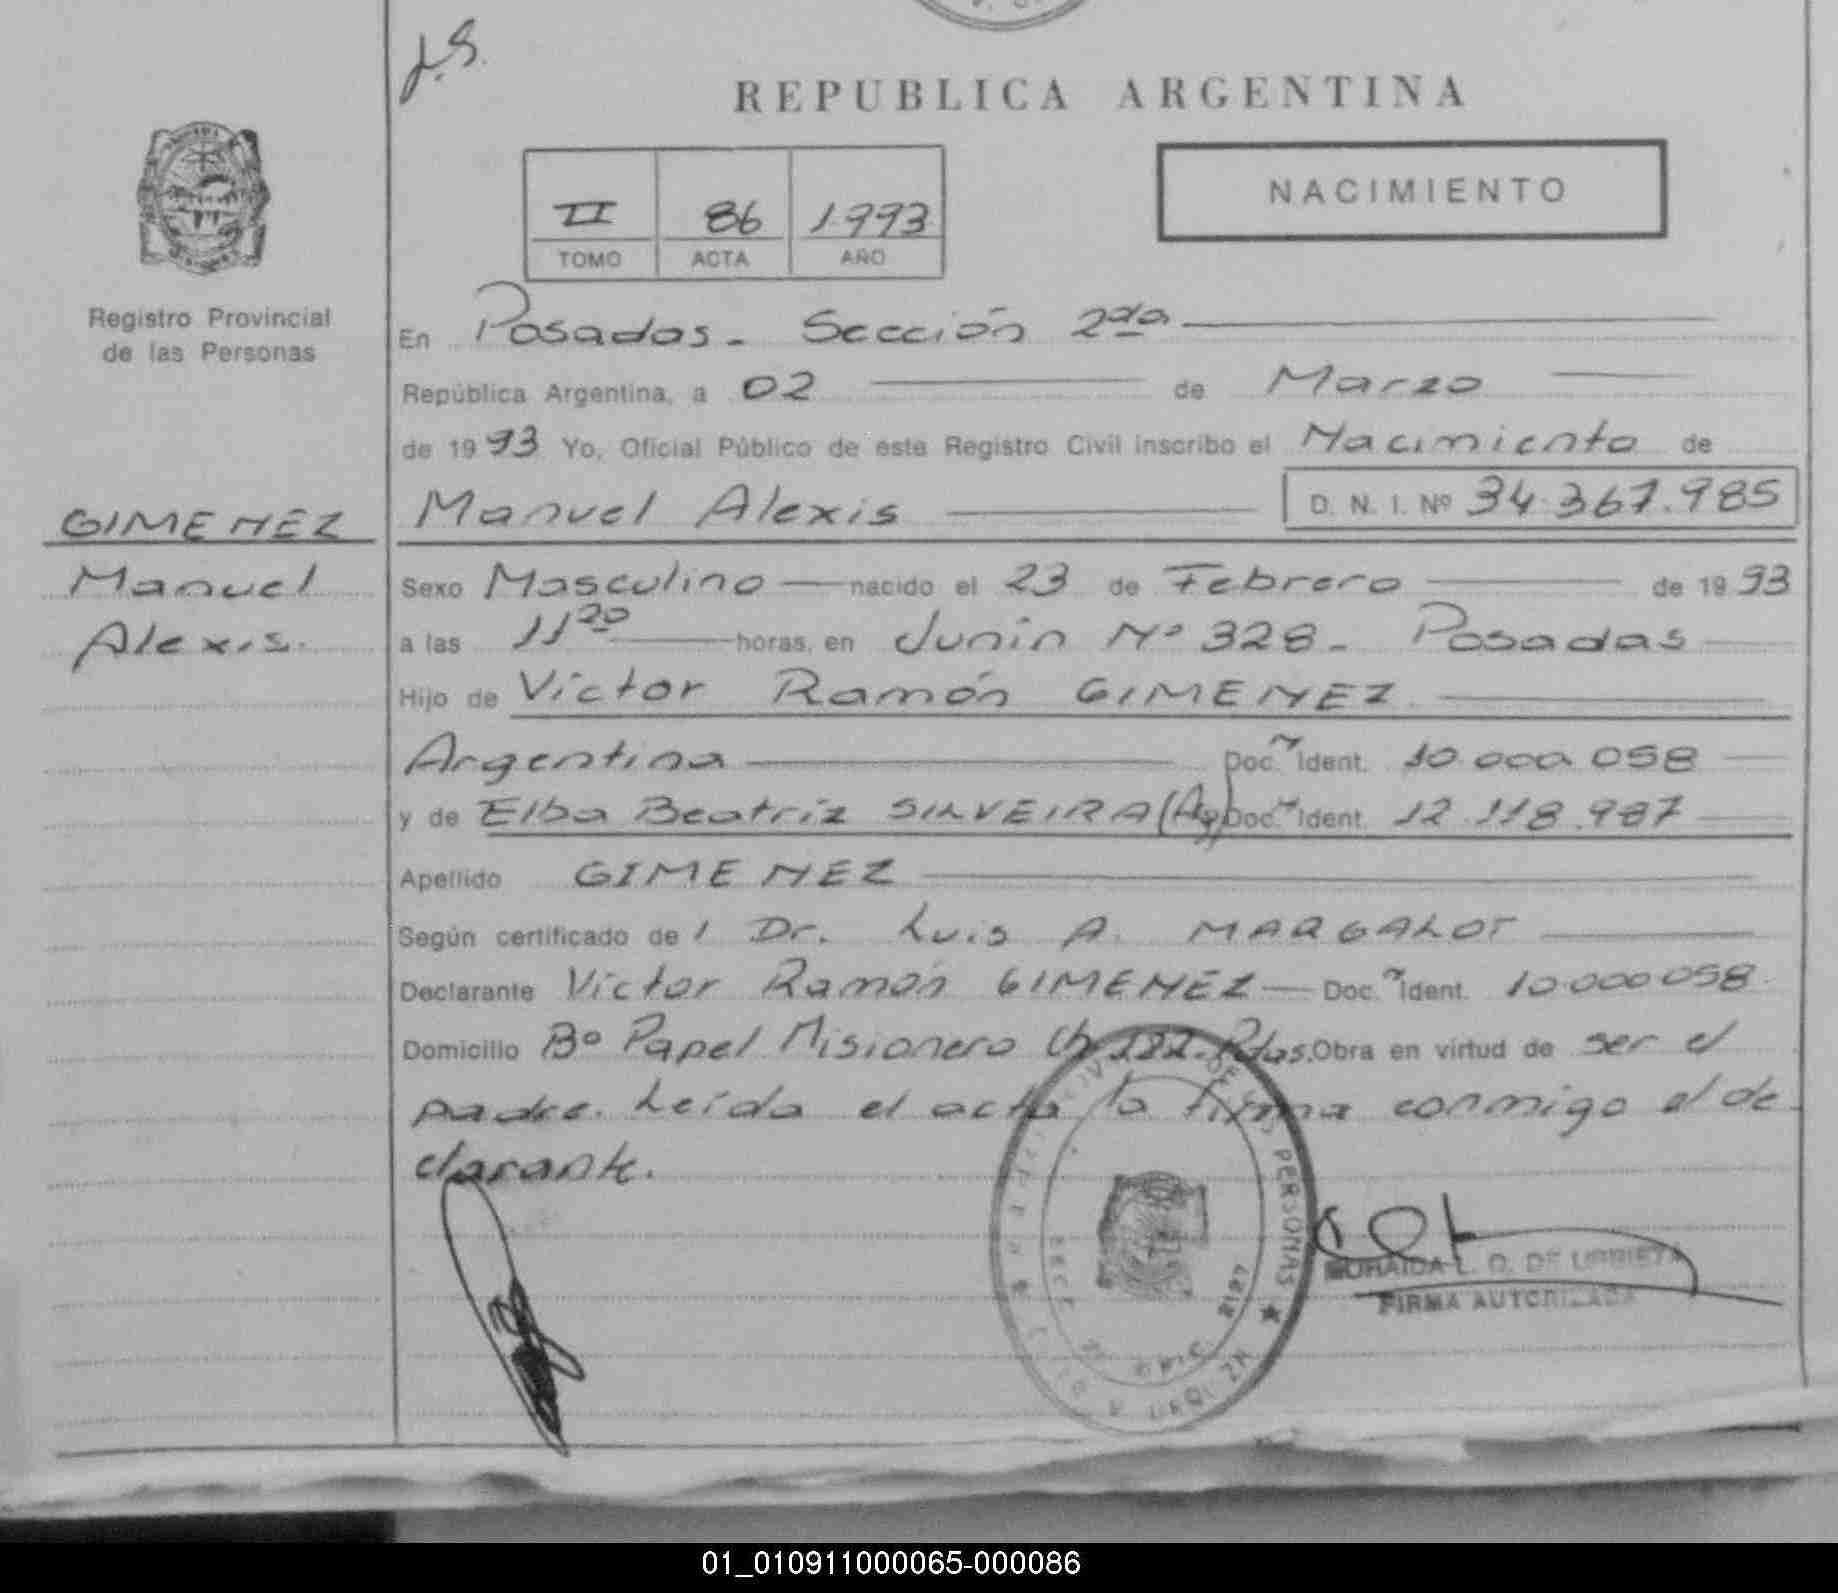 REPUBLICA ARGENTINA
NACIMIENTO
II 86 1993
TOMO ACTA AÑO
Registro Provincial
de las Personas
En Posadas - Sección 2da
República Argentina, a 02 de Marzo
de 1993 Yo, Oficial Público de este Registro Civil inscribo el Nacimiento de
GIMENEZ
Manuel Alexis D. N. I. Nº 34.367.985
Manuel
Sexo Masculino nacido el 23 de Febrero de 1993
Alexis.
a las 11 20 horas, en Junín Nº 328 - Posadas
Hijo de Víctor Ramón GIMENEZ
Argentina Doc. Ident. 10.000.058
y de Elba Beatríz SILVEIRA (Arg) Doc. Ident. 12.118.987
Apellido GIMENEZ
Según certificado de l Dr. Luis A. MARGALOT
Declarante Víctor Ramón GIMENEZ - Doc. Ident. 10.000.058
Domicilio Bº Papel Misionero Ch 122. Pdas. Obra en virtud de ser el
padre. Leída el acta la firma conmigo el de
clarante.
DE LAS PERSONAS
L. O. DE URRIETA
FIRMA AUTORIZADA
01_010911000065-000086